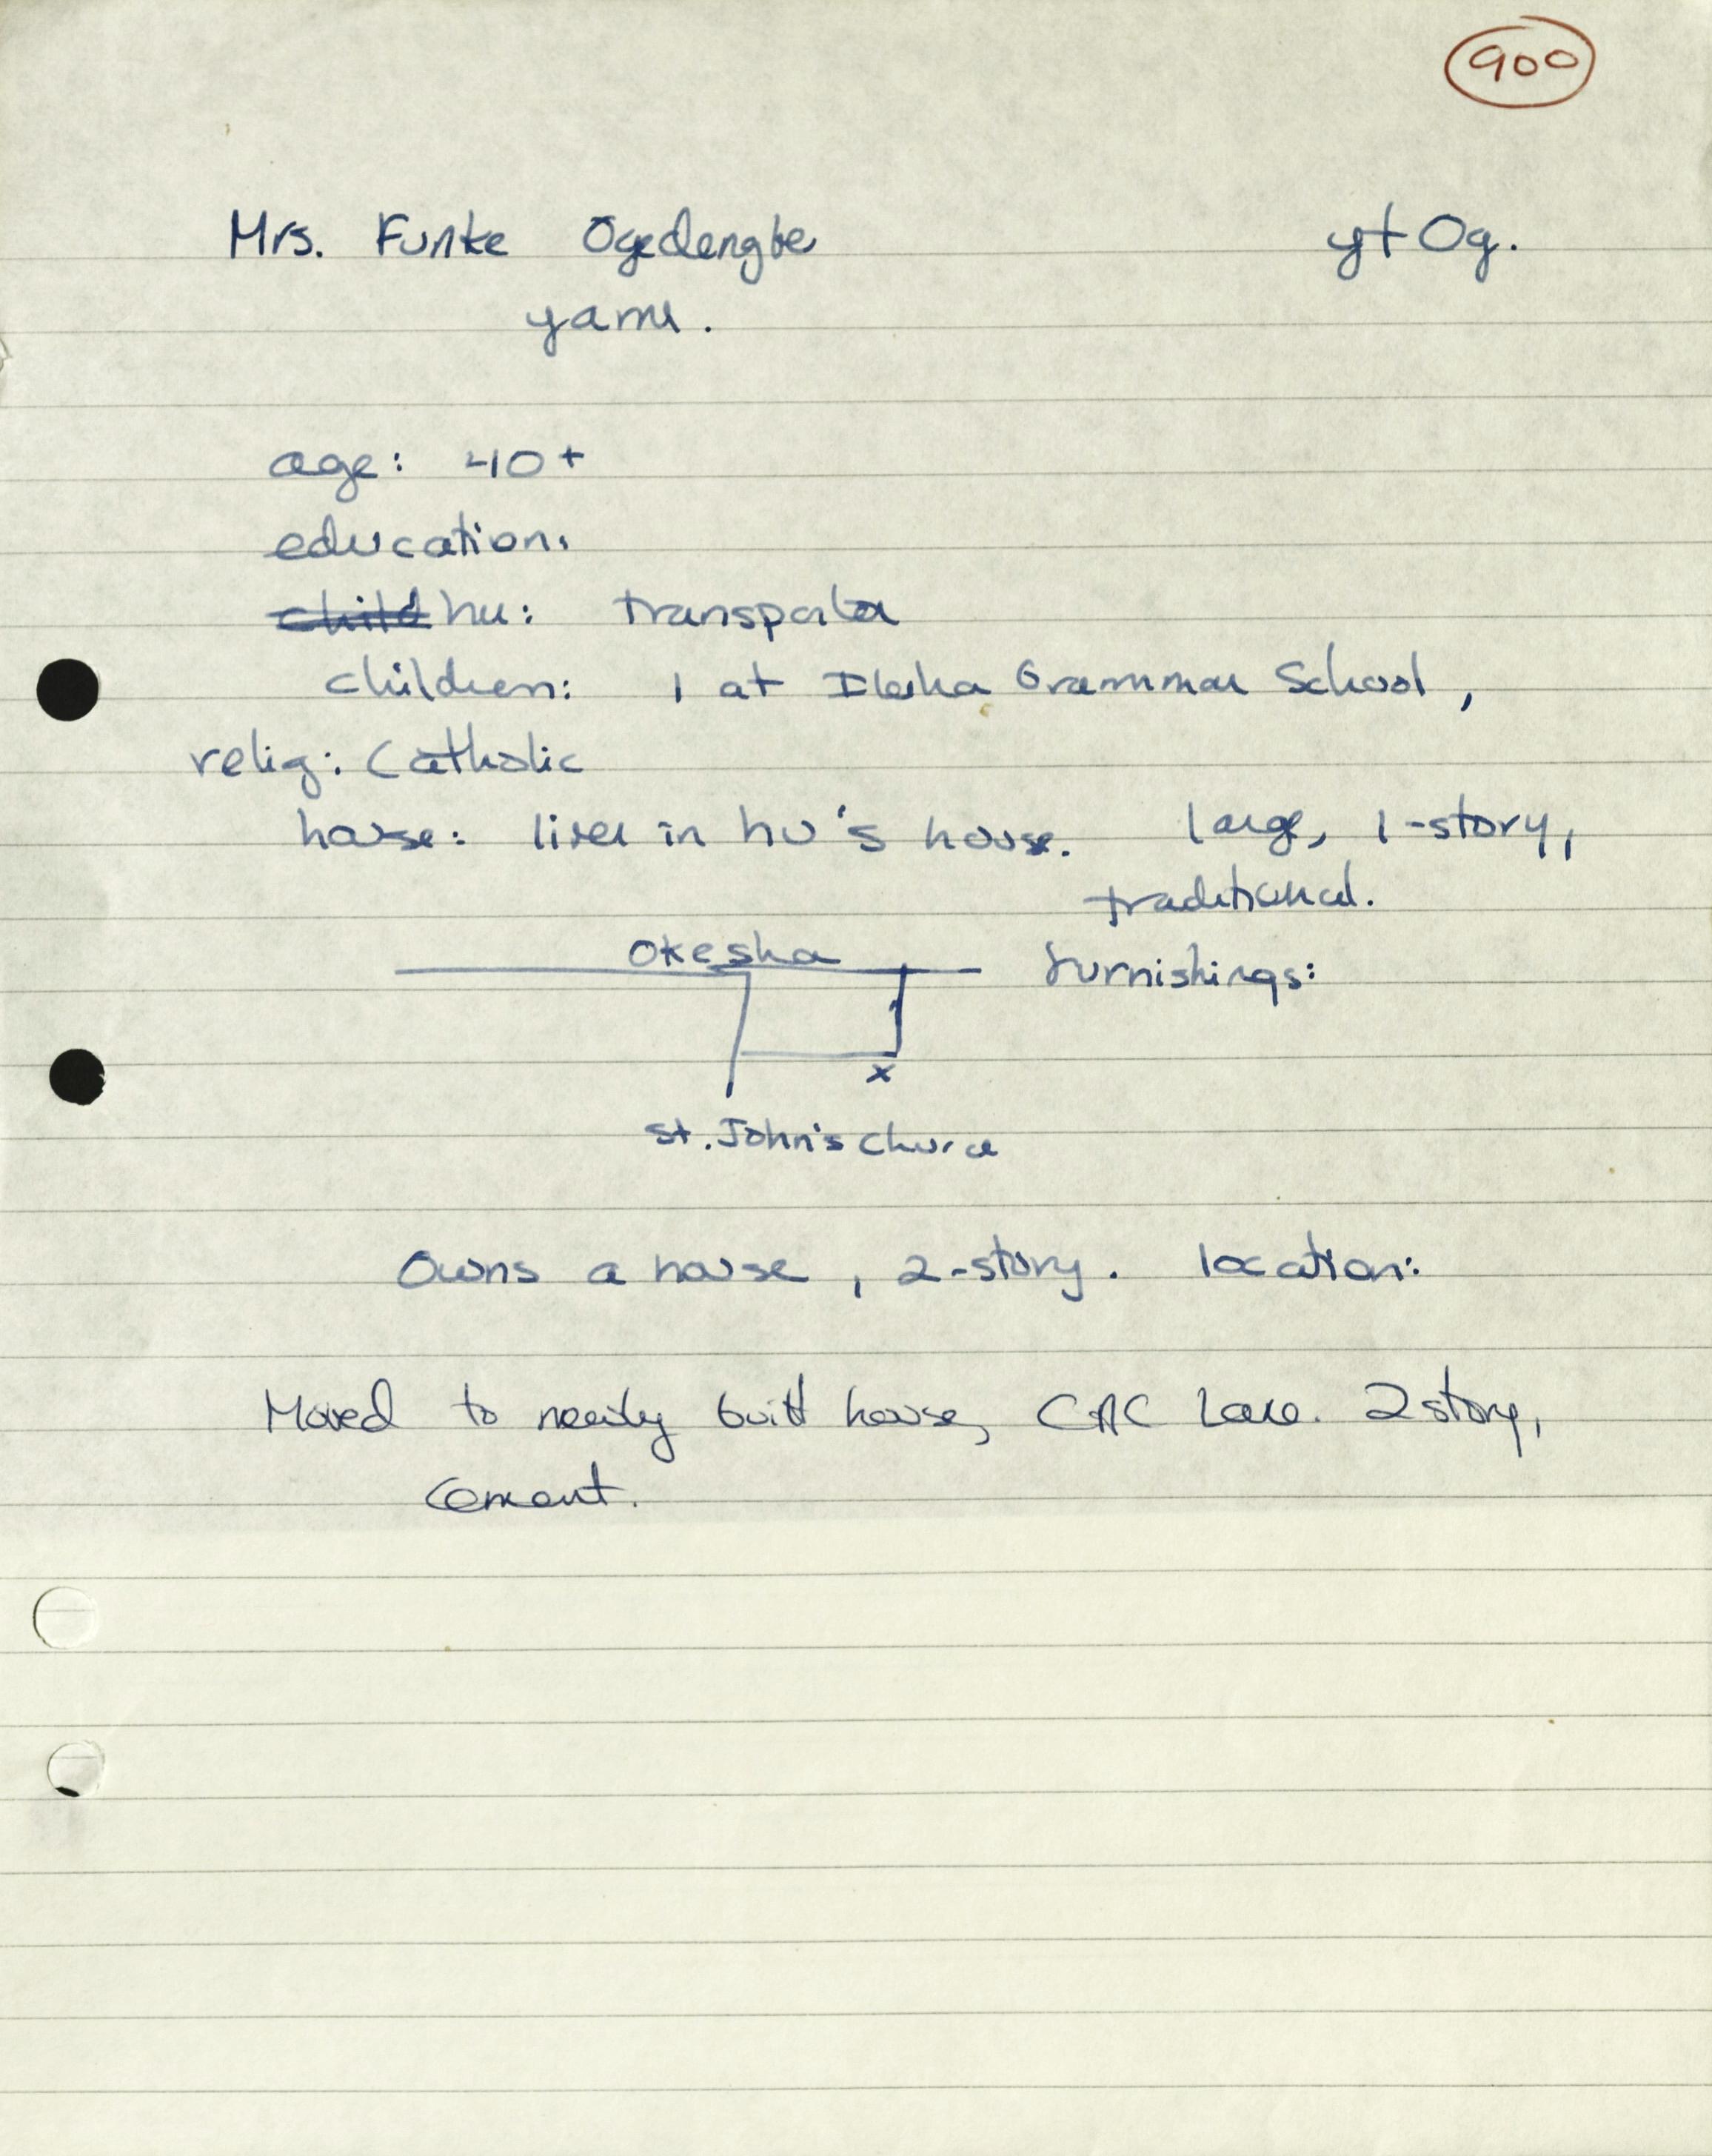 900
Mrs. Funke Ogedengbe yt Og.
yams.
age: 40+
education:
child hu: transporter
children: 1 at Ilesha Grammar School,
relig: Catholic
house: lives in hu's house. large, 1-story,
traditional.
Okesha furnishings:
x
St. John's Church
Owns a house, 2-story. location:
Moved to newly built house, CAC Lane. 2 story,
cement.